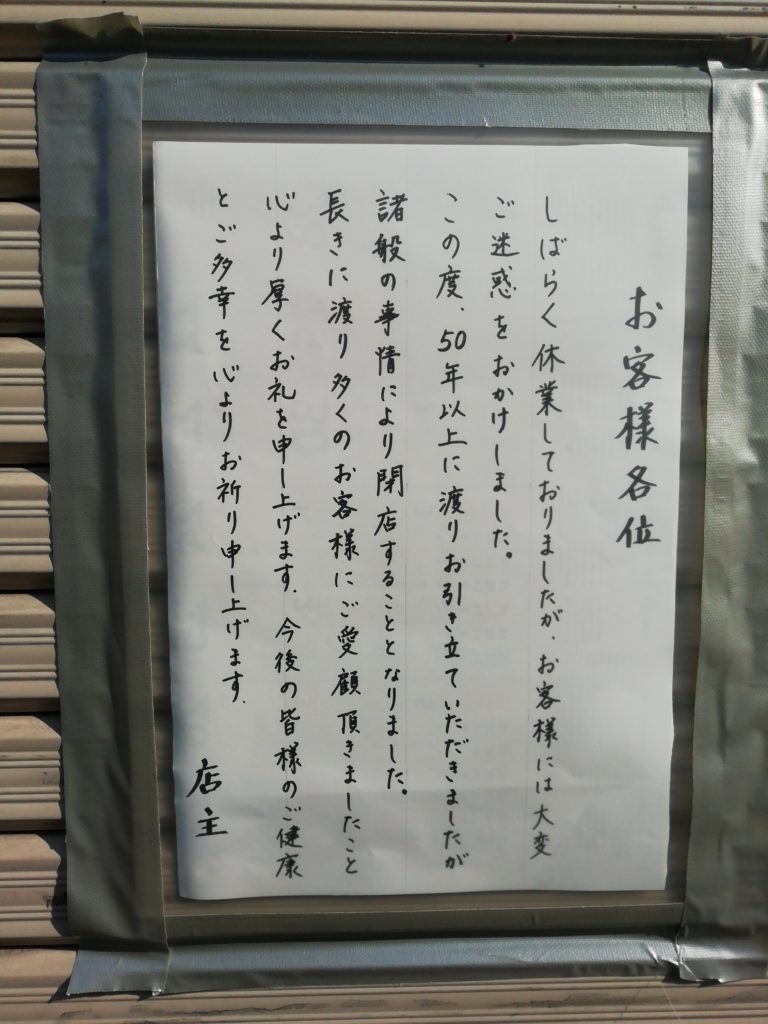 お客様各位
しばらく休業しておりましたが、お客様には大変
ご迷惑をおかけしました。
この度、50年以上に渡りお引き立ていただきましたが
諸般の事情により閉店することとなりました。
長きに渡り多くのお客様にご愛顧頂きましたこと
心より厚くお礼を申し上げます。今後の皆様のご健康
とご多幸を心よりお祈り申し上げます。
店主